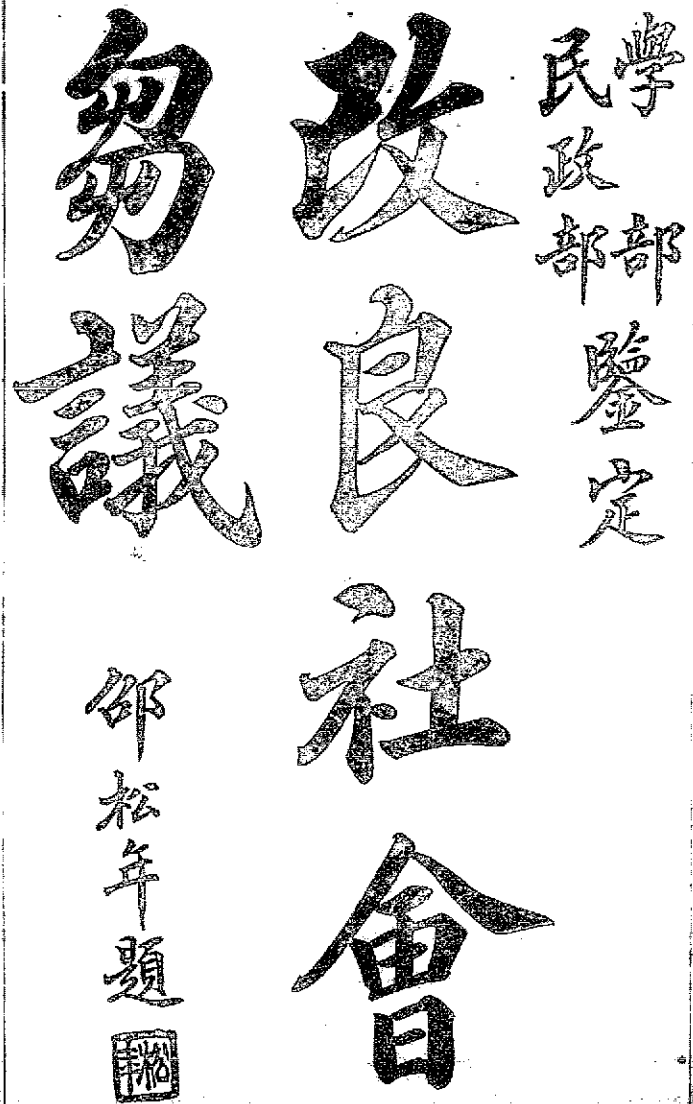 學部
民政部
鑒定
改良社會
芻議
邵松年題
松年